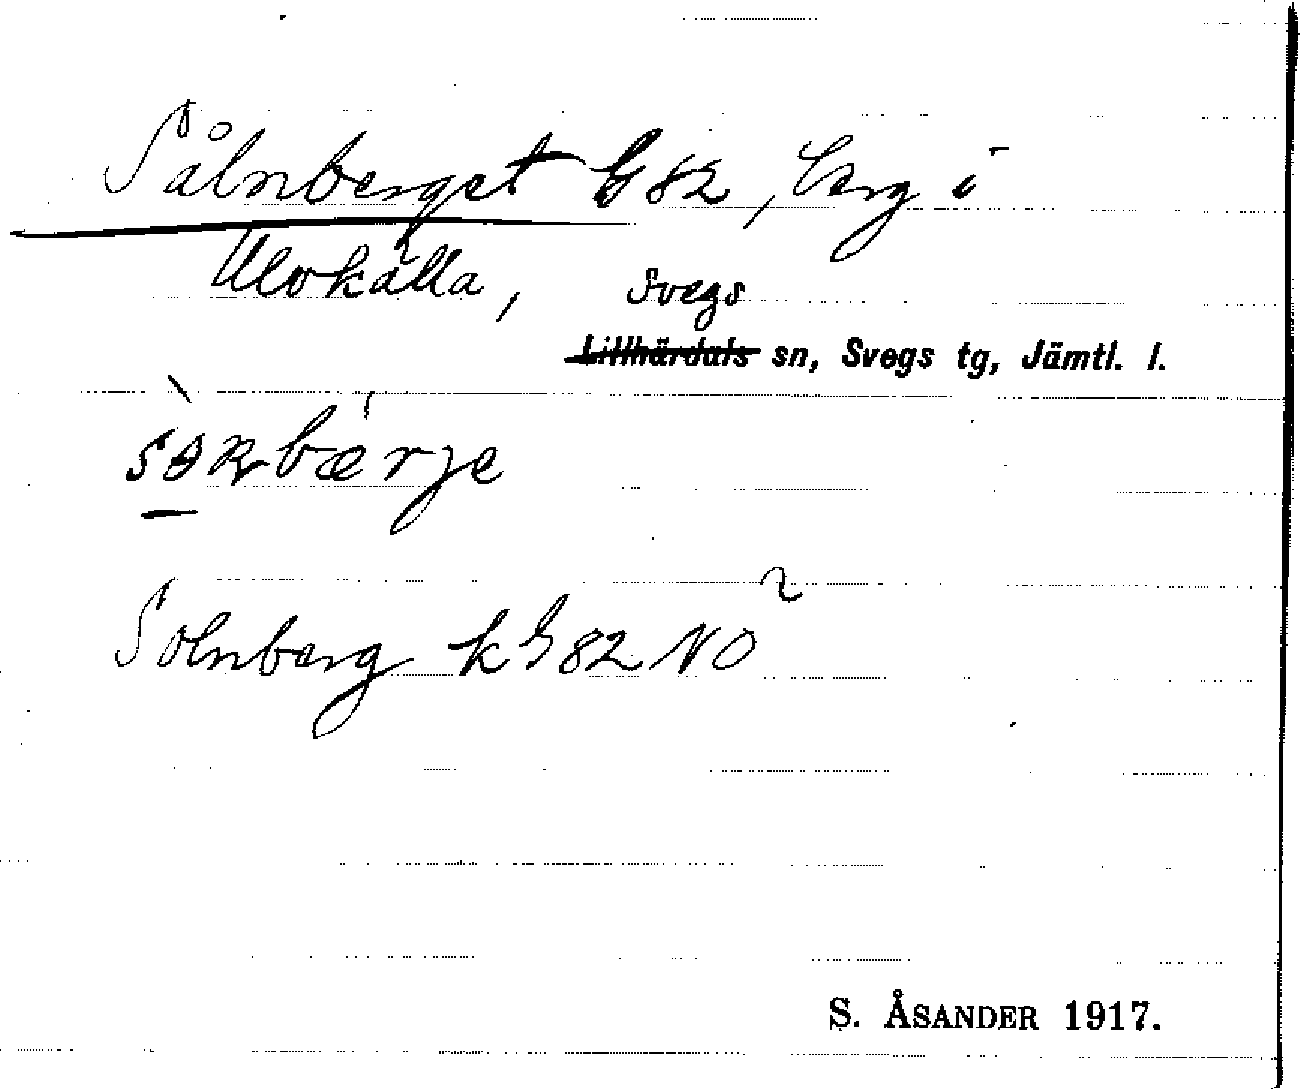 Sålnberget G 82, berg i
Ulvkälla, Svegs
Lillhärdals sn, Svegs tg, Jämtl. l.
sɵ̀ɴbæ̀rje
Solnberg k G 82 NO
S. ÅSANDER 1917.